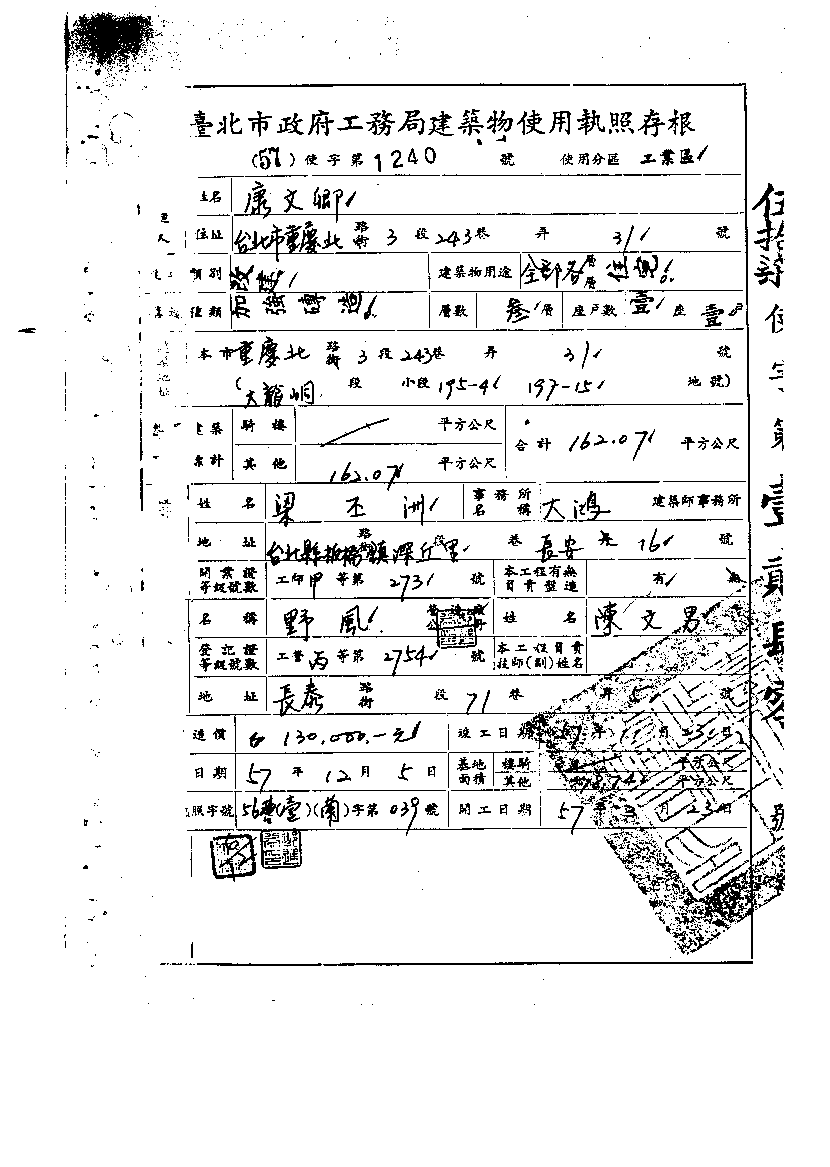 臺北市政府工務局建築物使用執照存根
(57)使字第1240號 使用分區 工業區
姓名 康文卿
住址 台北市重慶北路街3段243巷 弄 31號
類別 改建 建築物用途 全部各層
種類 加強磚造 層數 叁層 座戶數 壹座壹戶
本市重慶北路街3段243巷 弄 31號
(大龍峒 段 小段 195-4 197-15 地號)
建築 騎樓 平方公尺 合計 162.07 平方公尺
累計 其他 162.07 平方公尺
姓名 梁丕洲 事務所名稱 大鴻 建築師事務所
地址 台北縣板橋鎮深丘里 路街 段 巷 長安 16號
開業證等級號數 工師甲等第2731號 本工程有無負責監造 有 無
名稱 野風 姓名 陳文男
登記證等級號數 工營丙等第2754號 本工程負責技師(副)姓名
地址 長泰路街 段71巷 弄5號
造價 130,000.-元 竣工日期 57年11月 日
日期 57年12月5日 基地面積 騎樓 平方公尺 其他 平方公尺
照字號 56 (壹)(蘭)字第039號 開工日期 57年 月23日
伍拾柒使字第壹貳肆零號